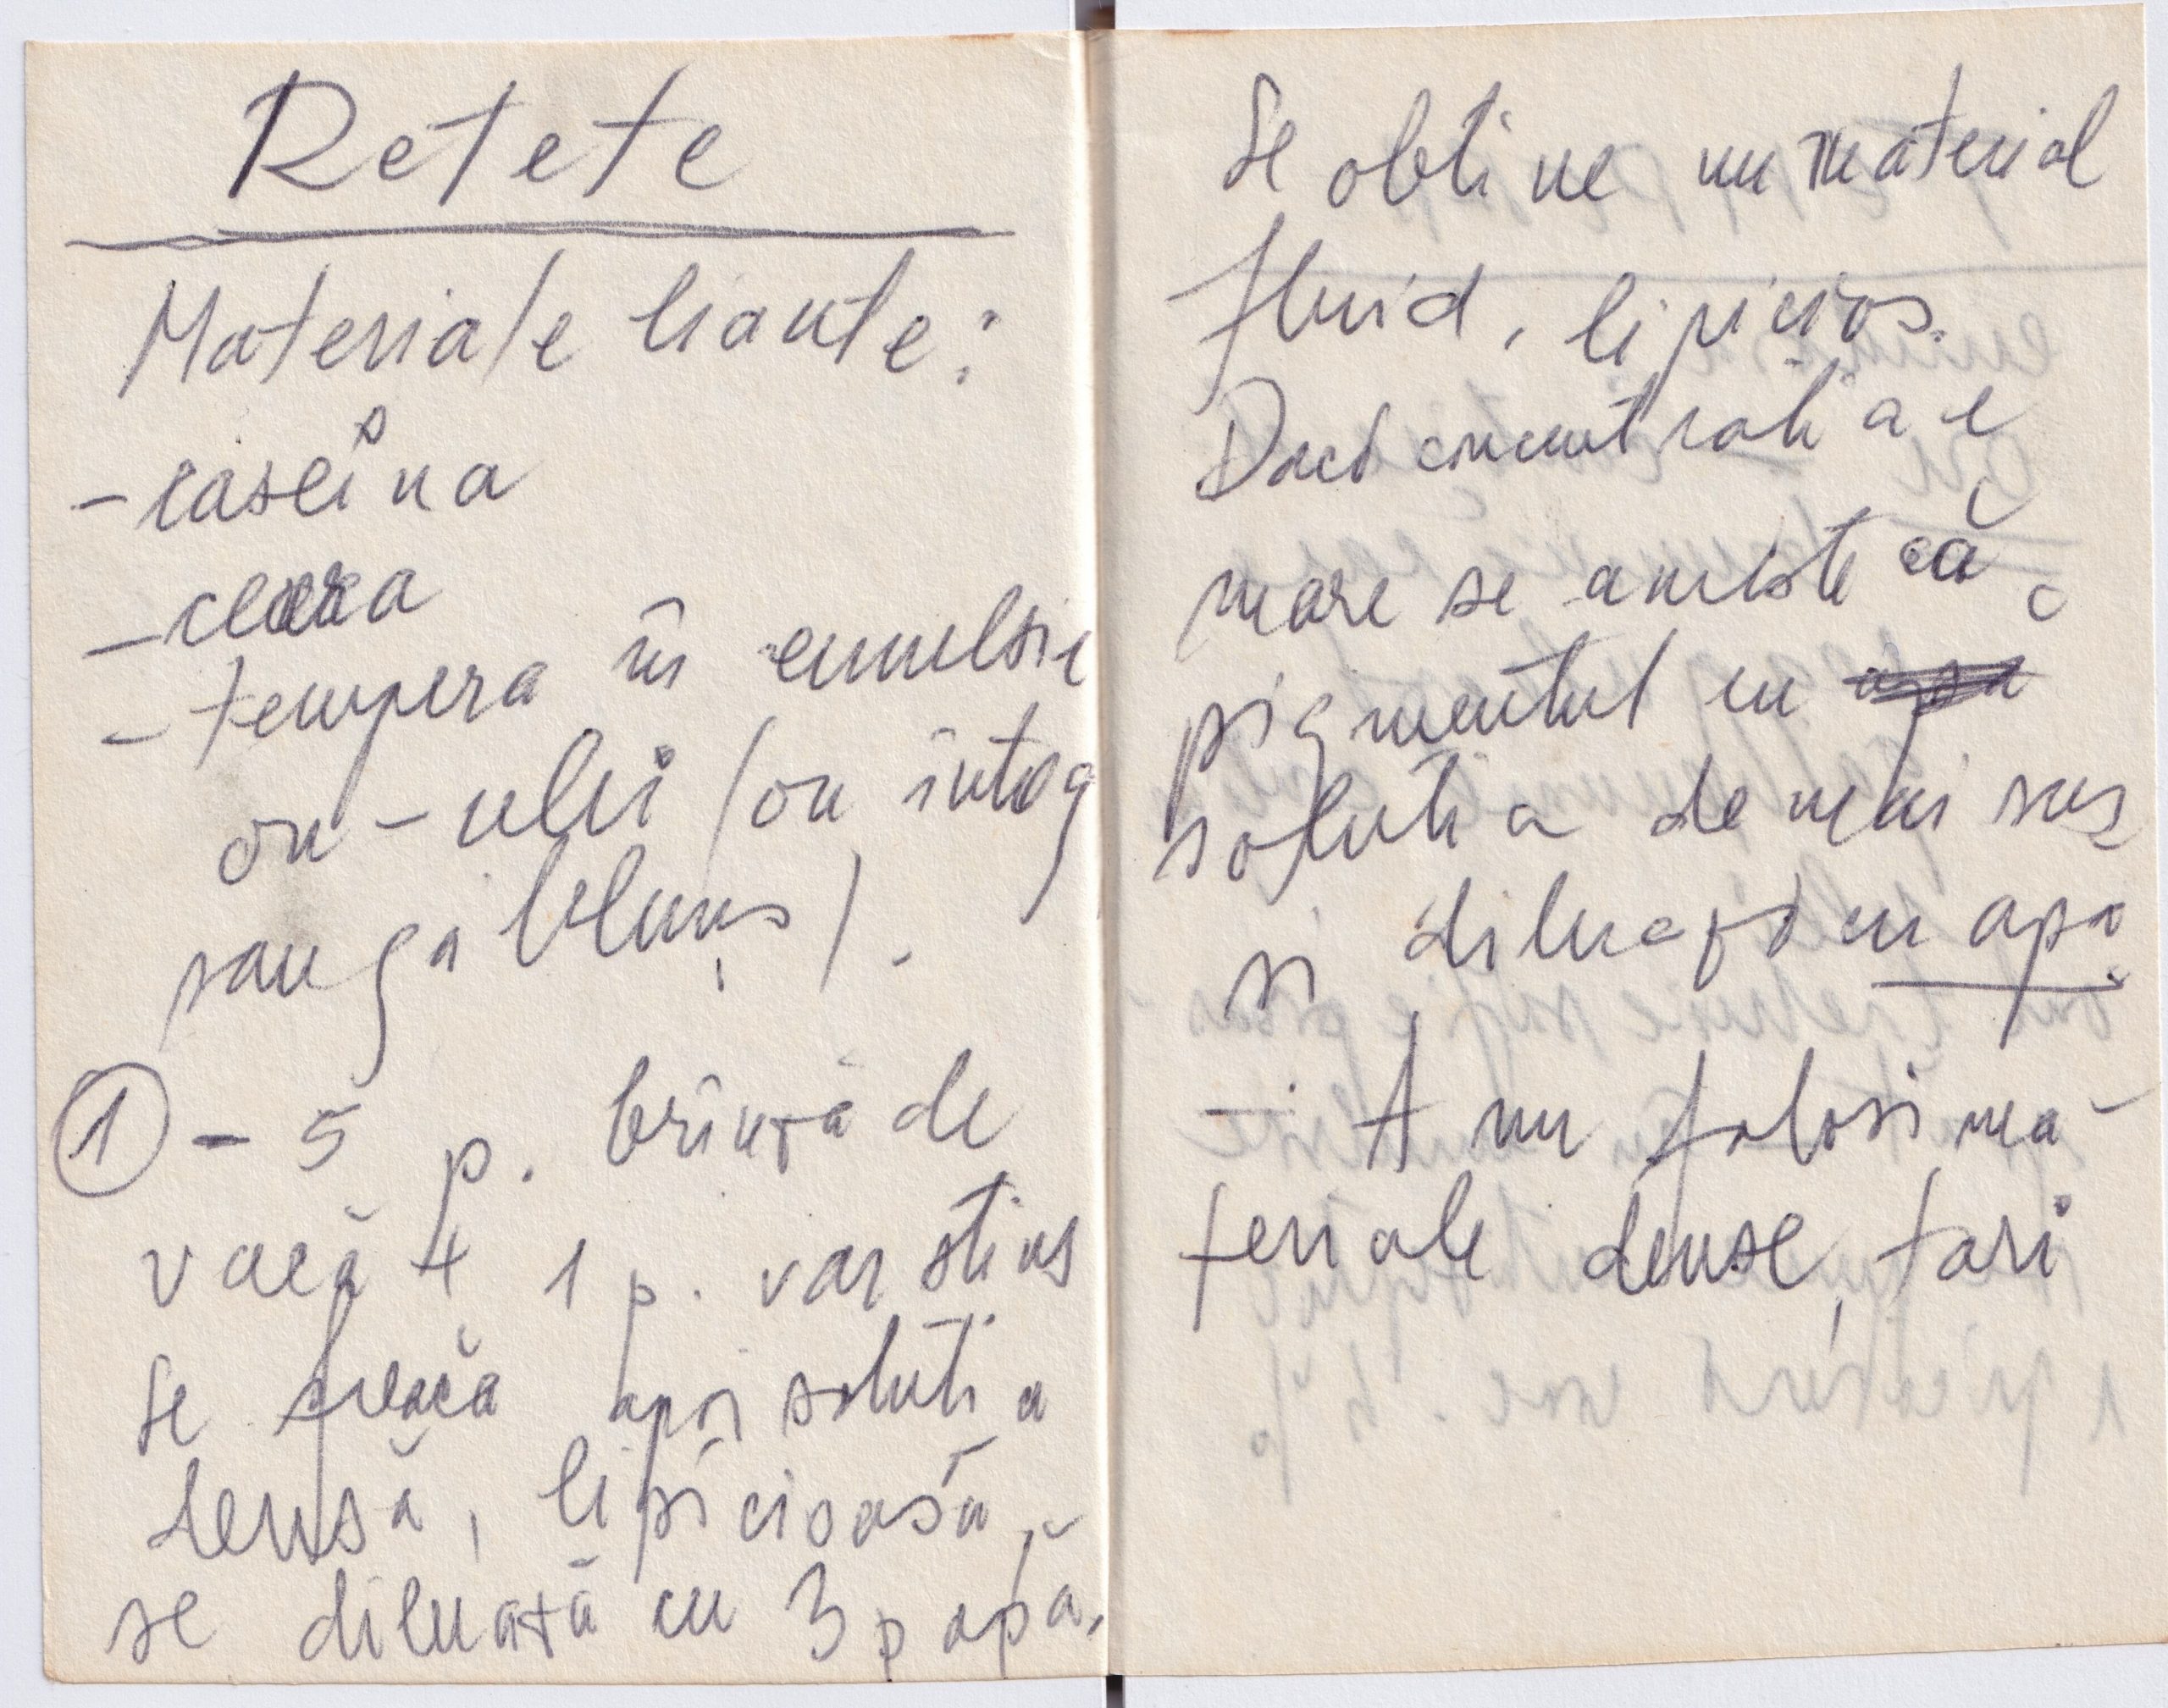 Retete
Materiale liante:
- caseina
- ceara
- tempera în emulsie
ou - ulei (ou întreg
sau gălbenuș).
① - 5 p. brînză de
vacă + 1 p. var stins
se freacă apoi solutia
densă, lipicioasă,
se diluază cu 3 p apă.
Se obtine un material
fluid, lipicios.
Dacă concentratia e
mare se amestecă
pigmentul cu
solutia de mai sus
si diluază cu apă
- A nu folosi ma-
teriale dense, tari